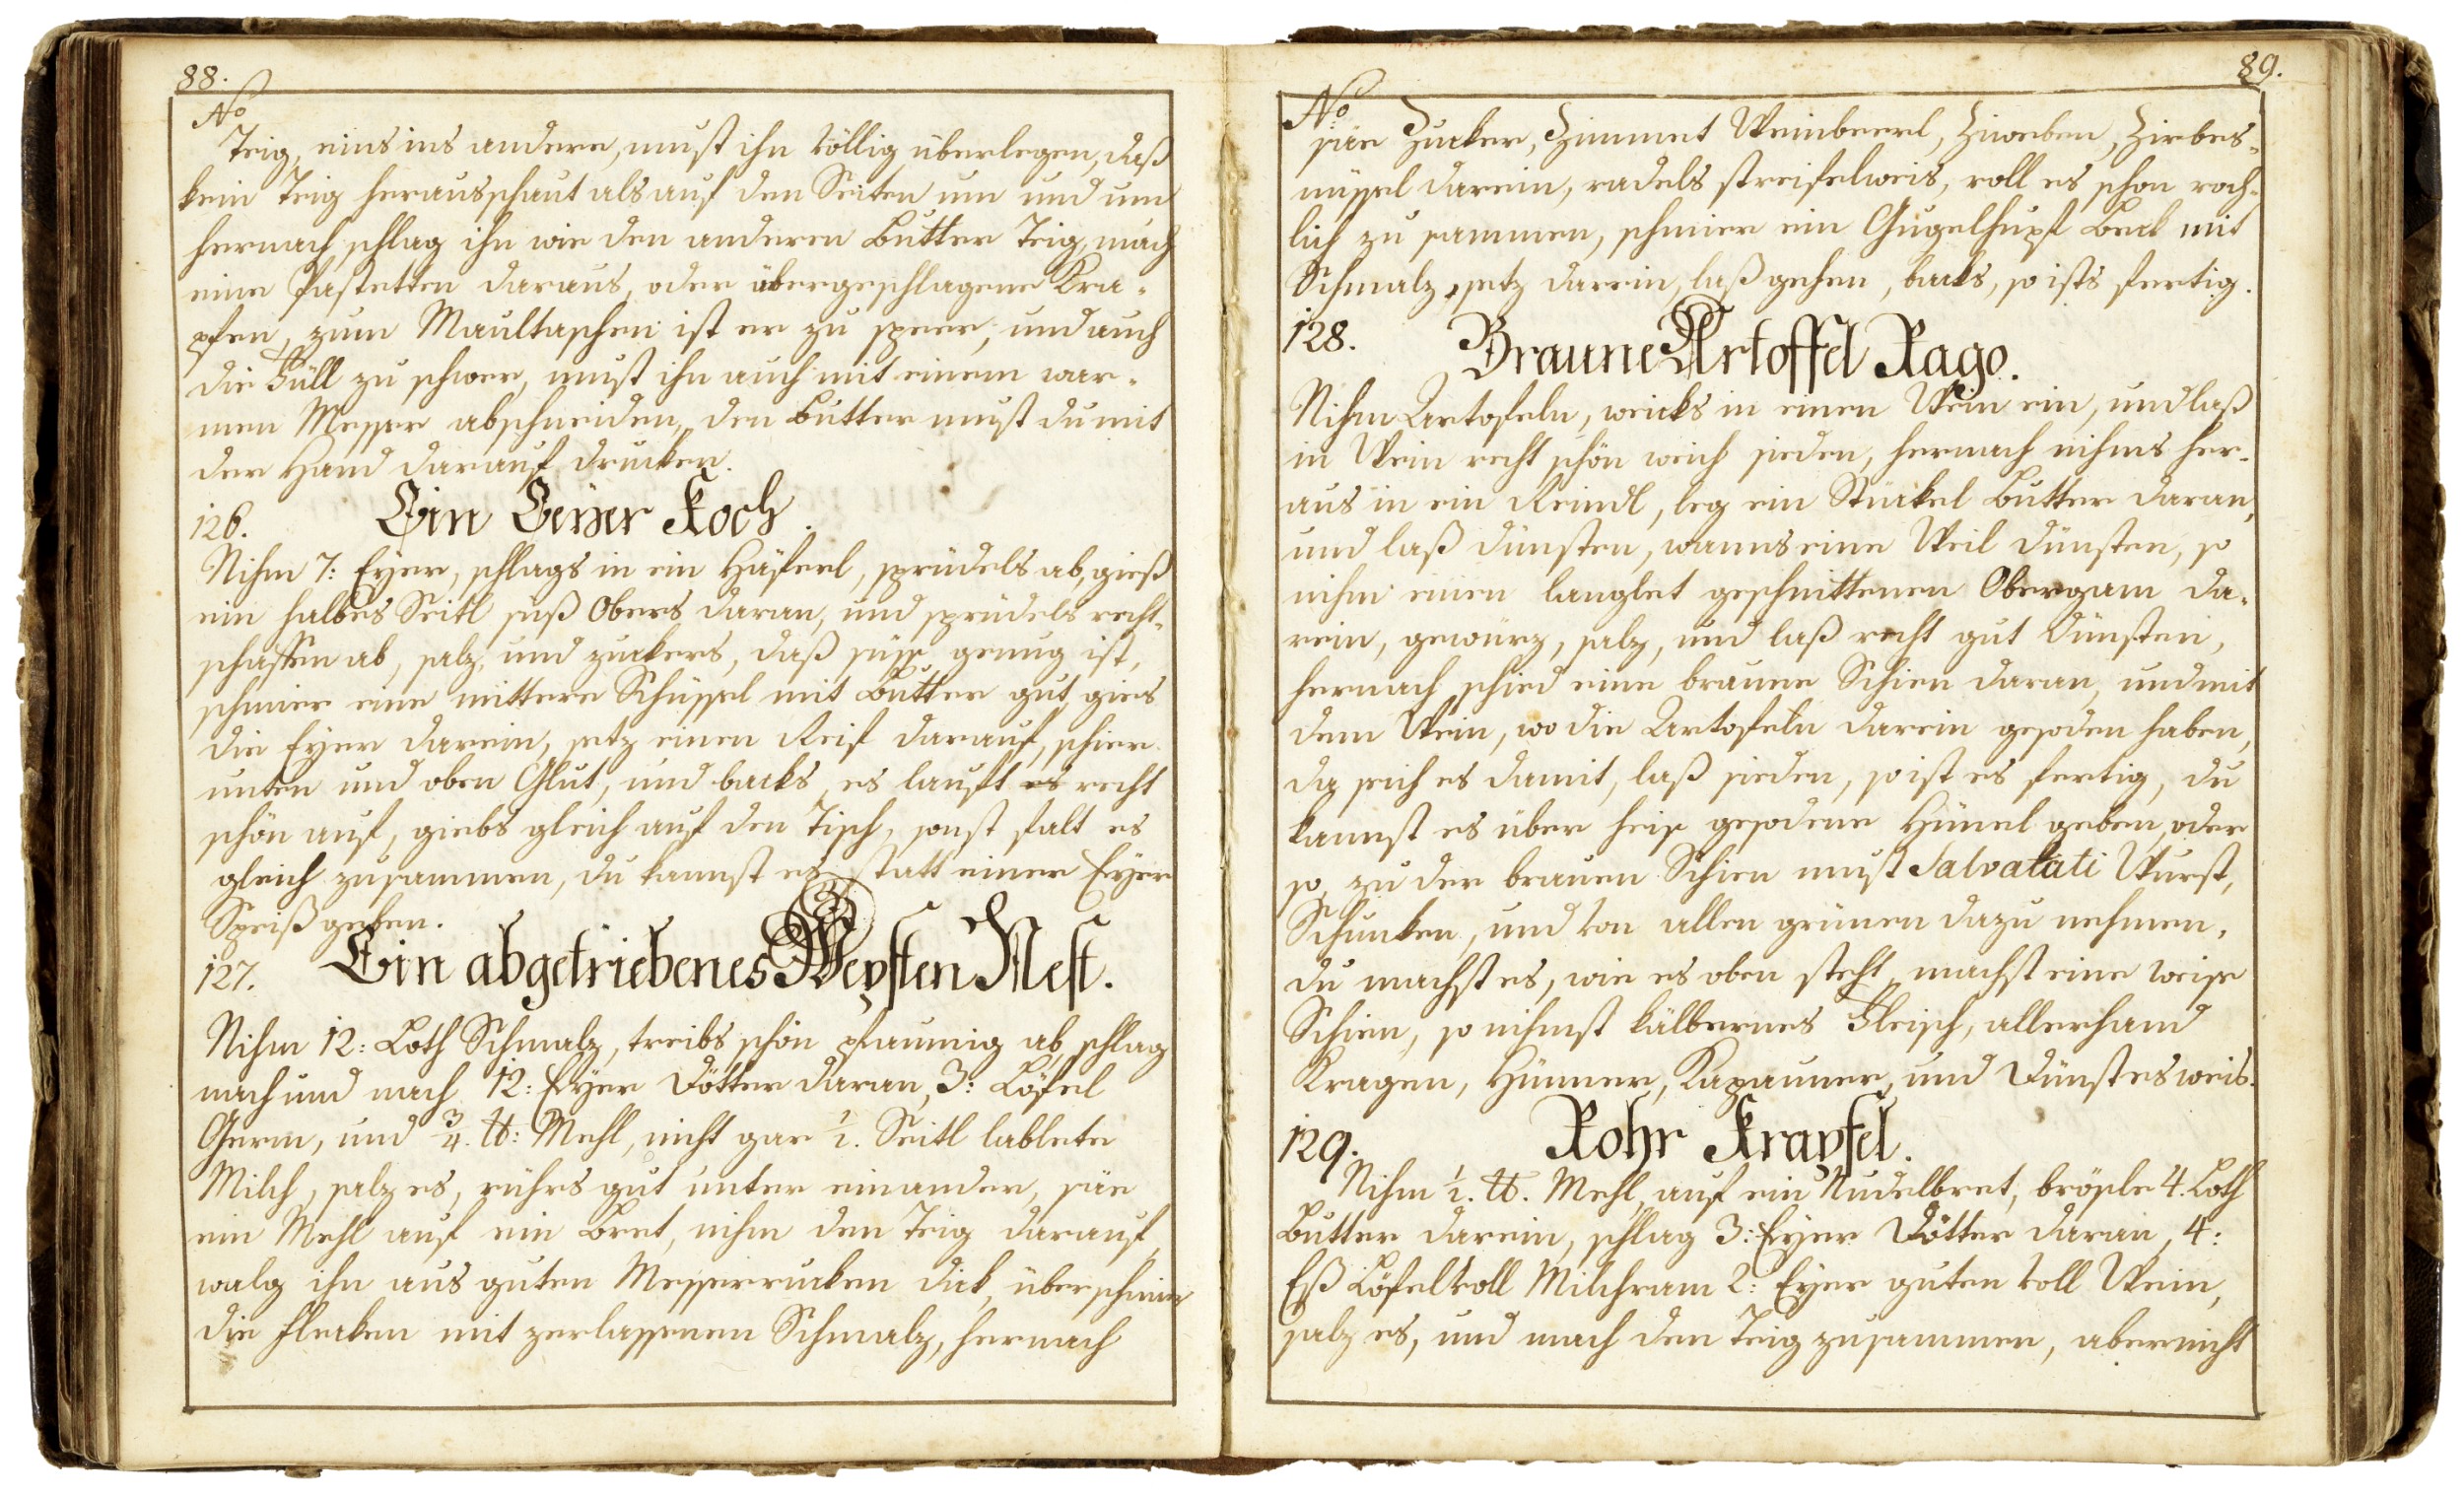 88.
No
Teig, eins ins andere, must ihn völlig überlegen, daß
kein Teig herausschaut als auf den Seiten um und um
hernach schlag ihn wie den anderen Butter Teig, mach
eine Pastetten daraus, oder übergeschlagene Kra-
pfen, zum Maultaschen ist er zu speer, und auch
die Füll zu schwer, must ihn auch mit einem war-
men Messer abschneiden, den Butter must du mit
der Hand darauf drucken.
126. Ein Eeÿer Koch.
Nihm 7: Eÿer, schlags in ein Häferl, sprudels ab, gieß
ein halbes Seitl süß Obers daran, und sprudels recht-
schaffen ab, salz, und zuckers, daß süsse genug ist,
schmier eine mittere Schüssel mit Butter gut, gies
die Eÿer darein, setz einen Reif darauf, schier
unten und oben Glut, und backs, es lauft es recht
schön auf, giebs gleich auf den Tisch, sonst falt es
gleich zusammen, du kannst es statt einer Eÿer
Speiß geben.
127. Ein abgetriebenes Wepsten Nest.
Nihm 12: Loth Schmalz, treibs schön pflaumig ab, schlag
nach und nach 12: Eÿer Dötter daran, 3: Löfel
Germ, und 3/4. ℔: Mehl, nicht gar 1/2. Seitl lablete
Milch, salz es, rührs gut unter einander, säe
ein Mehl auf ein Bret, nihm den Teig darauf,
walg ihn aus guten Messerrucken dick, überschmier
die Flecken mit zerlassenen Schmalz, hernach
89.
No
säe Zucker, Zimmet Weinbeerl, Ziweben, Zirbes-
nüssel darein, radels streifelweis, roll es schon roch-
lich zu sammen, schmier ein Gugelhupf Beck mit
Schmalz, setz darein, laß gehen, backs, so ists fertig.
128. Braune Artoffel Rago.
Nihm Artofeln, weicks in einen Wein ein, und laß
in Wein recht schön weich sieden, hernach nihms her-
aus in ein Reindl, leg ein Stückel Butter daran,
und laß dünsten, wanns eine Weil dünsten, so
nihm einen langlet geschnittenen Obergam da-
rein, gewürz, salz, und laß recht gut dünsten,
hernach schied eine braune Schien daran, und mit
dem Wein, wo die Artofeln darein gesoden haben,
da seich es damit, laß sieden, so ist es fertig, du
kannst es über heise gesodene Hünel geben, oder
so, zu der brauen Schien must Salvalati Wurst,
Schunken, und von allen grünen dazu nehmen,
du machst es, wie es oben steht, machst eine weise
Schien, so nihmst kälbernes Fleisch, allerhand
Kragen, Hünner, Kapauner, und dünst es weis.
129. Rohr Krapfel.
Nihm 1/2. ℔. Mehl, auf ein Nudelbret, brösle 4. Loth
Butter darein, schlag 3: Eÿer Dötter daran, 4:
Eß Löfel voll Milchram 2: Eÿer guten voll Wein,
salz es, und mach den Teig zusammen, aber nicht